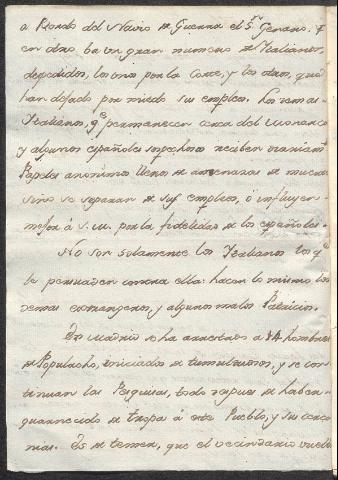 a Bordo del Navio de Guerra el Sn. Genaro. Y
en otro, ba un gran numero de Italianos,
depedidos, los unos por la Corte, y los otros, que
han dejado por miedo sus empleos. Los demas
Italianos, qe. permanecen cerca del Monarca
y algunos españoles sospechosos reciben diariamte.
Papeles anonimos llenos de amenazas de muerte
sino se separan de sus empleos, ó influyen
mejor á S. M. por la fidelidad de los españoles.
No son solamente los Italianos los qe.
le persuaden contra ella: hacen lo mismo los
demas extrangeros, y algunos malos Patricios.
En Madrid se ha arrestado a 14 hombres
de Populacho, iniciados de tumultuosos, y se con-
tinuan las Pesquisas, todo despues de haber
guarnecido de tropa á este Pueblo, y sus cerca-
nias. Es de temer, que el vecindario vuelto